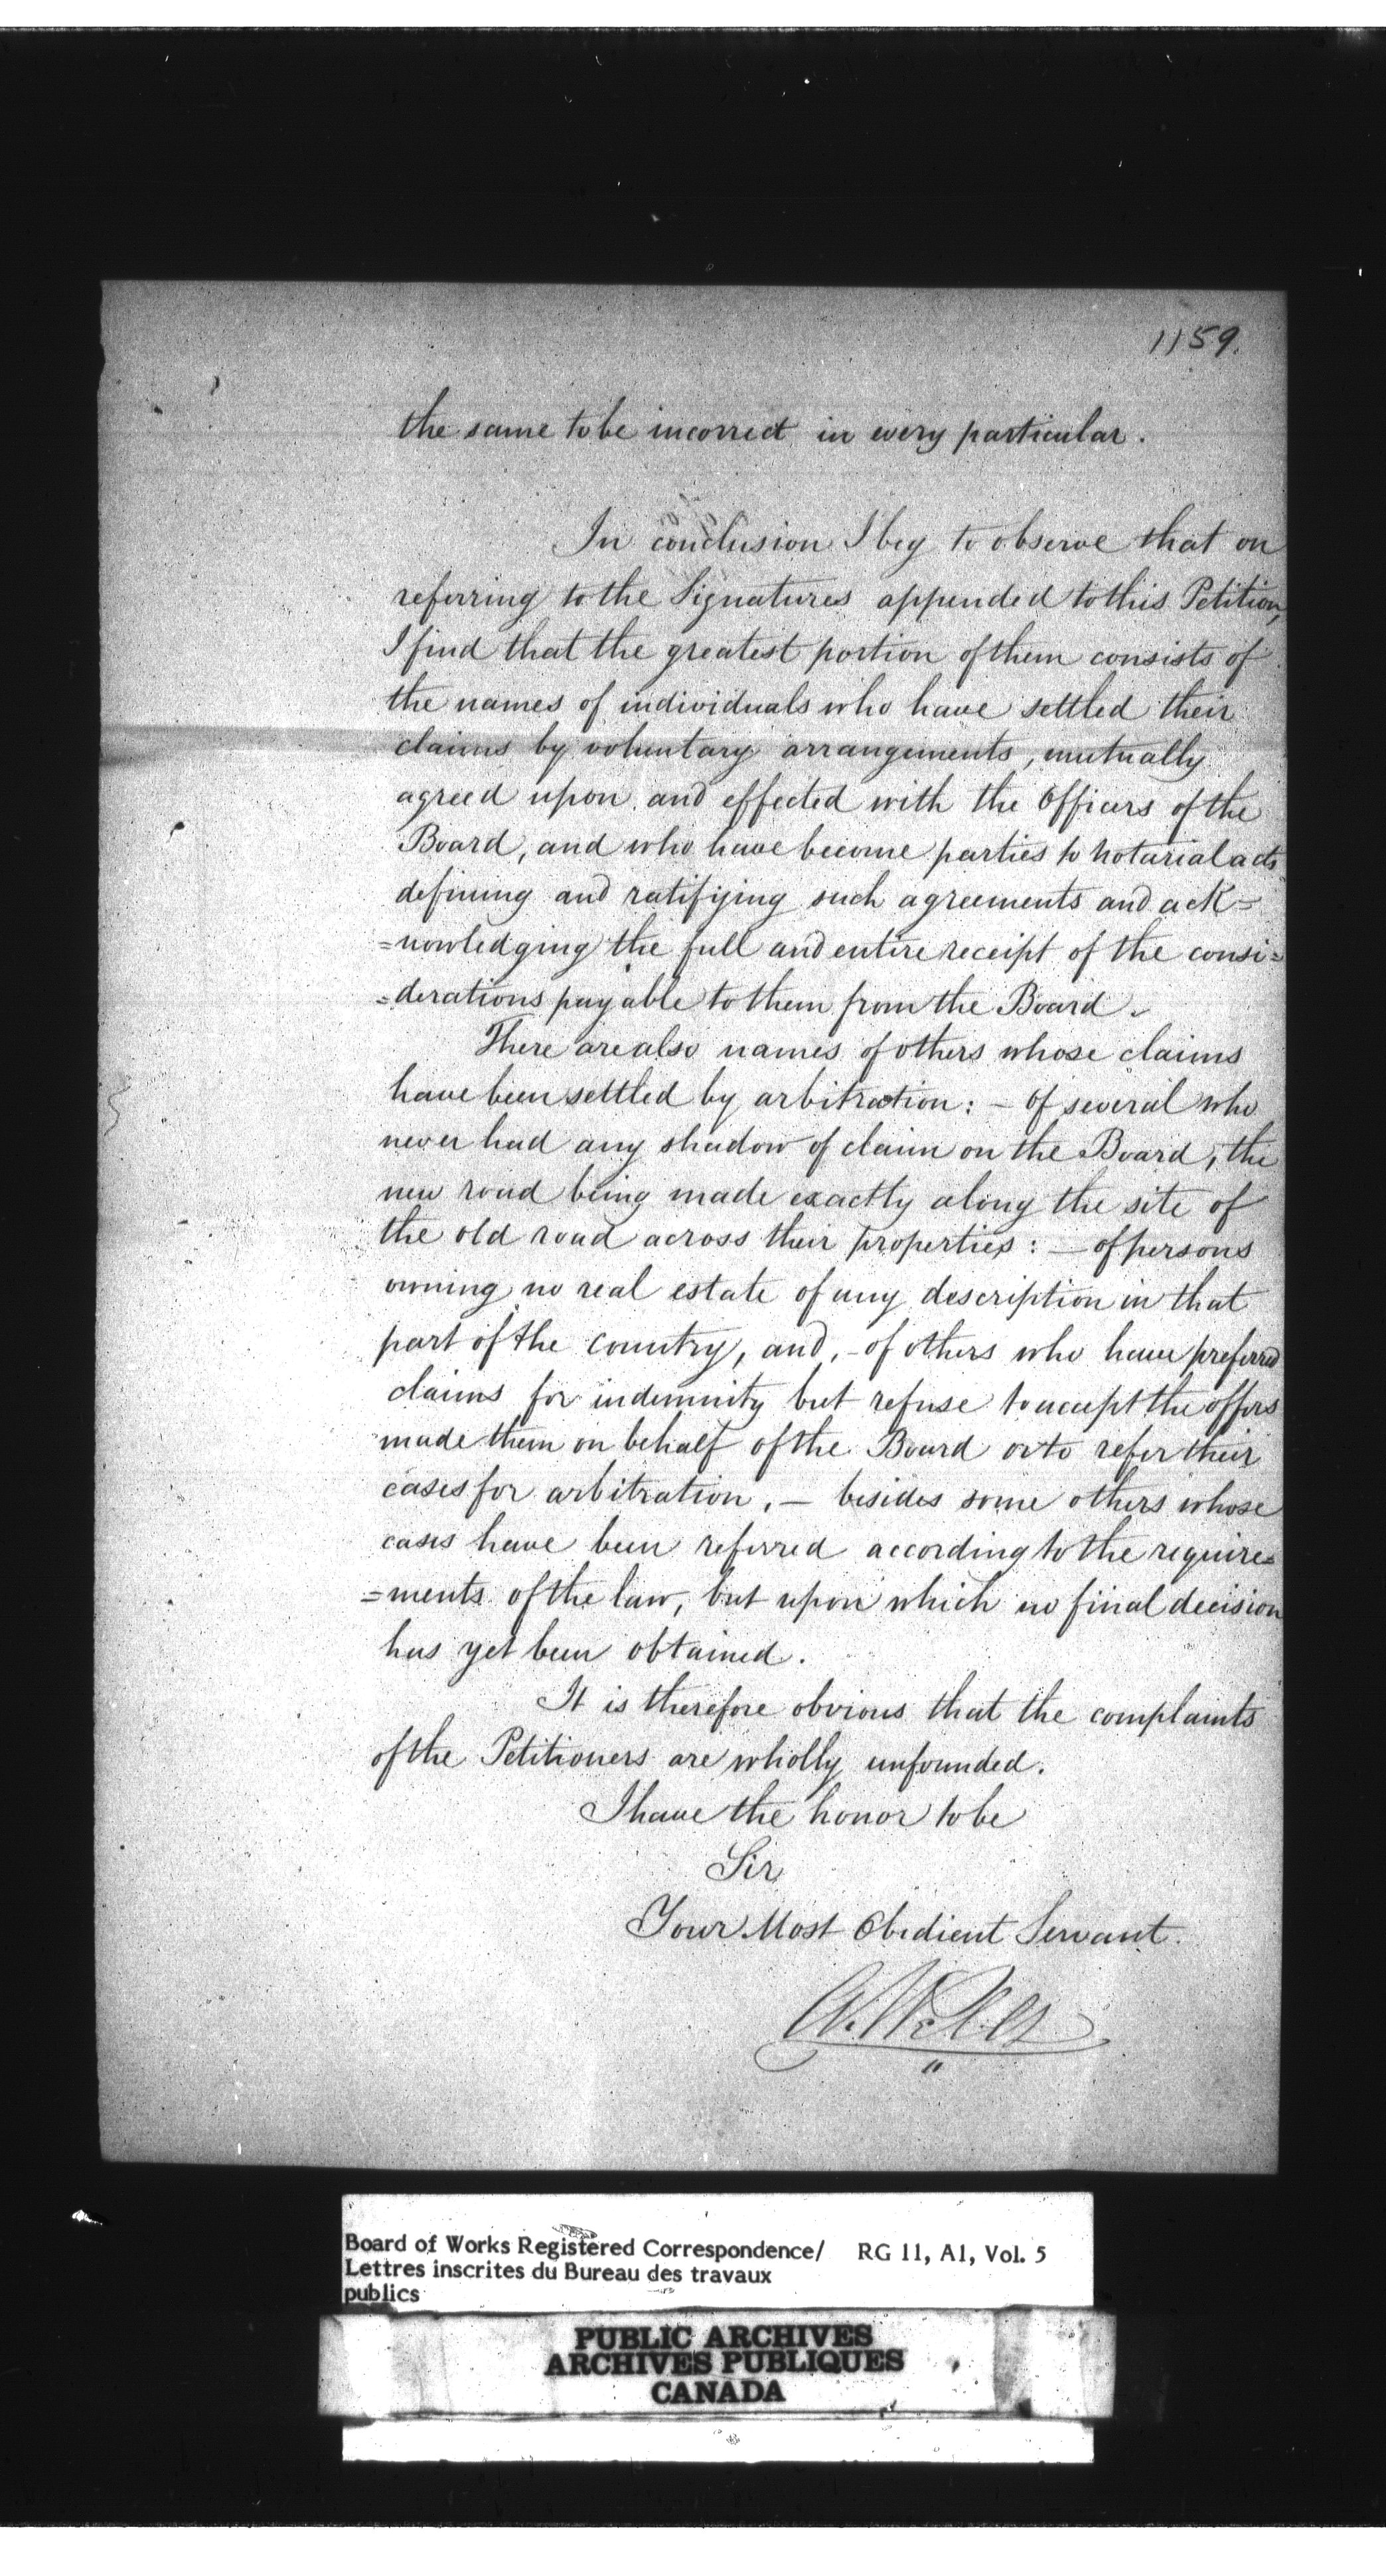 1159.
the same to be incorrect in every particular.
In conclusion I beg to observe that on
referring to the Signatures appended to this Petition,
I find that the greatest portion of them consists of
the names of individuals who have settled their
claims by voluntary arrangements, mutually
agreed upon and effected with the Officers of the
Board, and who have become parties to notarial acts
defining and ratifying such agreements and ack=
=nowledging the full and entire receipt of the consi=
=derations payable to them from the Board.
There are also names of others whose claims
have been settled by arbitration: — of several who
never had any shadow of claim on the Board, the
new road being made exactly along the site of
the old road across their properties: — of persons
owning no real estate of any description in that
part of the country, and, - of others who have preferred
claims for indemnity but refuse to accept the offers
made them on behalf of the Board or to refer their
cases for arbitration, — besides some others whose
cases have been referred according to the require=
=ments of the law, but upon which no final decision
has yet been obtained.
It is therefore obvious that the complaints
of the Petitioners are wholly unfounded.
I have the honor to be
Sir
Your Most Obedient Servant.
Board of Works Registered Correspondence/ RG 11, A1, Vol. 5
Lettres inscrites du Bureau des travaux
publics
PUBLIC ARCHIVES
ARCHIVES PUBLIQUES
CANADA